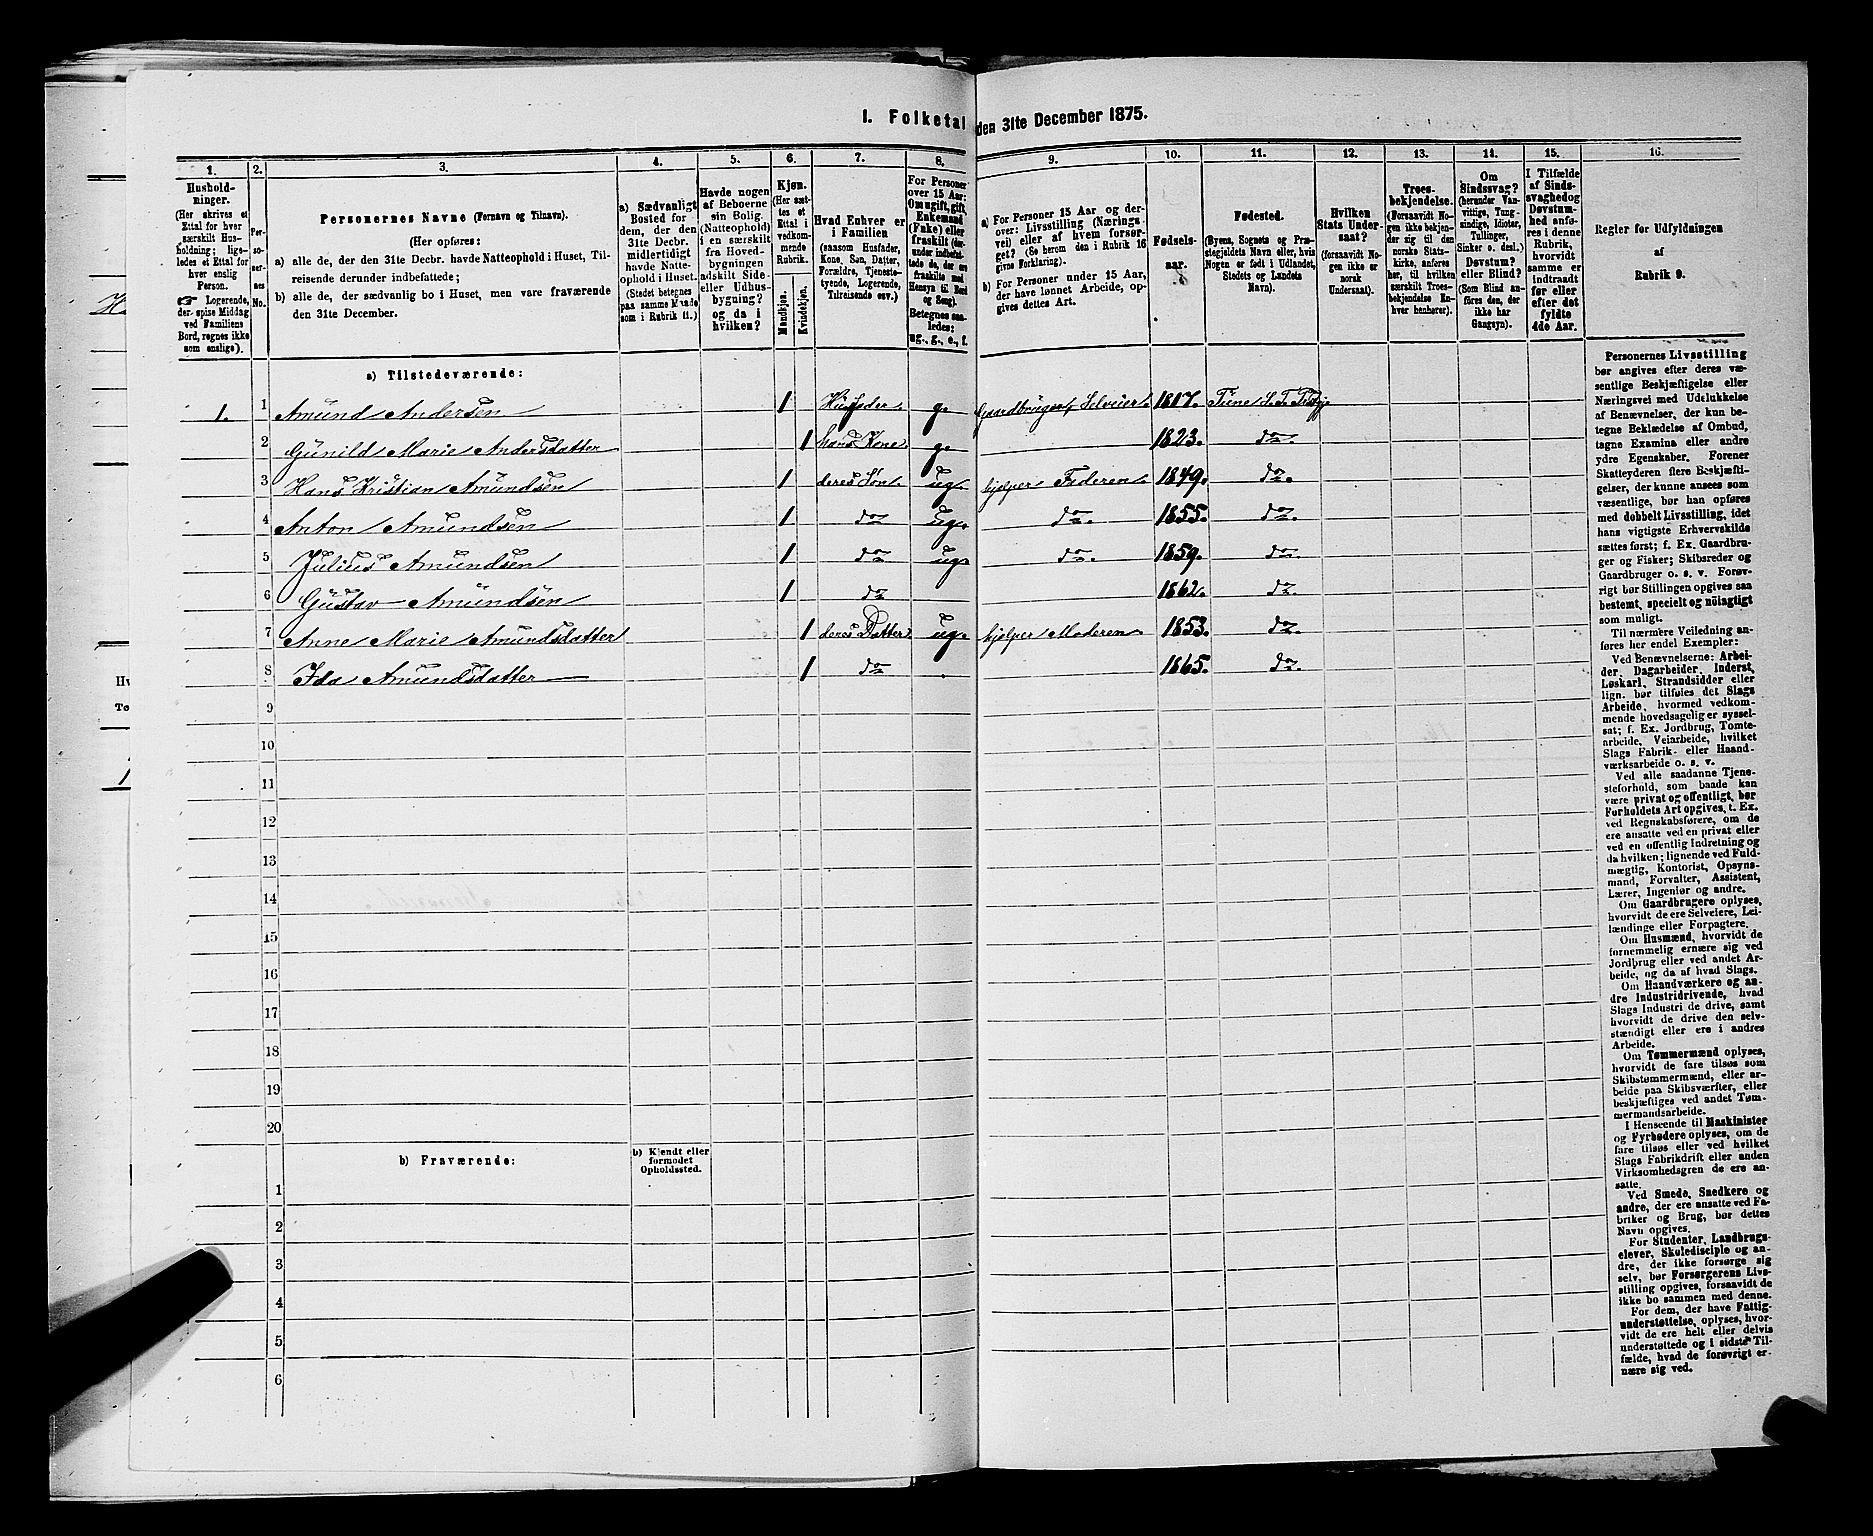 I. Folketal den 31te December 1875.
1. 2. 3. 4. 5. 6. 7. 8. 9. 10. 11. 12. 13. 14. 15. 16.
Husholdninger.
(Her skrives et Ettal for hver særskilt Husholdning; ligeledes et Ettal for hver enslig Person.
☞ Logerende, der spise Middag ved Familiens Bord, regnes ikke som enslige).
Personernes No.
Personernes Navne (Fornavn og Tilnavn).
(Her opføres:
a) alle de, der den 31te Decbr. havde Natteophold i Huset, Tilreisende derunder indbefattede;
b) alle de, der sædvanlig bo i Huset, men vare fraværende den 31te December.
a) Sædvanligt Bosted for dem, der den 31te Decbr. midlertidigt havde Natteophold i Huset. (Stedet betegnes paa samme Maade som i Rubrik 11.)
Havde nogen af Beboerne sin Bolig (Natteophold) i en særskilt fra Hovedbygningen adskilt Side- eller Udhusbygning? og da i hvilken?
Kjøn. (Her sættes et Ettal i vedkommende Rubrik.
Mandkjøn. Kvindekjøn.
Hvad Enhver er i Familien
(saasom Husfader, Kone, Søn, Datter, Forældre, Tjenestetyende, Logerende, Tilreisende osv.)
For Personer over 15 Aar: Om ugift, gift, Enkemand (Enke) eller fraskilt (derunder indbefattede de, der ere fraskilte med Hensyn til Bord og Seng). Betegnes saaledes: ug., g., e., f.
a) For Personer 15 Aar og derover: Livsstilling (Næringsvei) eller af hvem forsørget? (Se herom den i Rubrik 16 givne Forklaring).
b) For Personer under 15 Aar, der have lønnet Arbeide, opgives dettes Art.
Fødselsaar.
Fødested.
(Byens, Sognets og Præstegjeldets Navn eller, hvis Nogen er født i Udlandet, Stedets og Landets Navn).
Hvilken Stats Undersaat?
(forsaavidt Nogen ikke er norsk Undersaat).
Troesbekjendelse.
(Forsaavidt Nogen ikke bekjender sig til den norske Statskirke, anføres her, til hvilken særskilt Troesbekjendelse Enhver henhører).
Om Sindssvag? (herunder Vanvittige, Tungsindige, Idioter, Tullinger, Sinker o. desl.) Døvstum? eller Blind? (Som Blind anføres den, der ikke har Gangsyn).
I Tilfælde af Sindssvaghed og Døvstumhed anføres i denne Rubrik, hvorvidt samme er indtraadt før eller efter det fyldte 4de Aar.
Regler for Udfyldningen af Rubrik 9.
a) Tilstedeværende:
1. 1 Amund Andersen 1 Husfader. g. Gaardbruger, Selveier. 1817. Tune
2 Gunild Marie Andersdatter 1 hans Kone. g. 1823. do.
3 Hans Kristian Amundsen 1 deres Søn. ug. hjelper Faderen. 1849. do.
4 Anton Amundsen 1 do ug. do. 1855. do.
5 Julius Amundsen 1 do ug. do. 1859. do.
6 Gustav Amundsen 1 do 1862. do.
7 Anne Marie Amundsdatter 1 deres Datter ug. hjelper Moderen. 1853. do.
8 Ida Amundsdatter 1 do 1865. do.
9
10
11
12
13
14
15
16
17
18
19
20
b) Fraværende:
b) Kjendt eller formodet Opholdssted.
1
2
3
4
5
6
Personernes Livsstilling
bør angives efter deres væ-
sentlige Beskjæftigelse eller
Næringsvei med Udelukkelse
af Benævnelser, der kun be-
tegne Beklædelse af Ombud,
tagne Examina eller andre
ydre Egenskaber. Forener
Skatteyderen flere Beskjæfti-
gelser, der kunne ansees som
væsentlige, bør han opføres
med dobbelt Livsstilling, idet
hans vigtigste Erhvervskilde
sættes først; f. Ex. Gaardbru-
ger og Fisker; Skibsreder og
Gaardbruger o. s. v. Forøv-
rigt bør Stillingen opgives saa
bestemt, specielt og nöiagtigt
som muligt.
Til nærmere Veiledning an-
føres her endel Exempler:
Ved Benævnelserne: Arbei-
der, Dagarbeider, Inderst,
Løskarl, Strandsidder eller
lign. bør tilføies det Slags
Arbeide, hvormed vedkom-
mende hovedsagelig er syssel-
sat; f. Ex. Jordbrug, Tomte-
arbeide, Veiarbeide, hvilket
Slags Fabrik- eller Haand-
værksarbeide o. s. v.
Ved alle saadanne Tjene-
steforhold, som baade kan
være privat og offentligt, bør
Forholdets Art opgives, t. Ex.
ved Regnskabsførere, om de
ere ansatte ved en privat eller
ved en offentlig Indretning og
da hvilken; lignende ved Fuld-
mægtig, Kontorist, Opsyns-
mand, Forvalter, Assistent,
Lærer, Ingeniør og andre.
Om Gaardbrugere oplyses,
hvorvidt de ere Selveiere, Lei-
lændinge eller Forpagtere.
Om Husmænd, hvorvidt de
fornemmelig ernære sig ved
Jordbrug eller ved andet Ar-
beide, og da af hvad Slags.
Om Haandværkere og an-
dre Industridrivende, hvad
Slags Industri de drive, samt
hvorvidt de drive den selv-
stændigt eller ere i andres
Arbeide.
Om Tømmermænd oplyses,
hvorvidt de fare tilsøs som
Skibstømmermænd, eller ar-
beide paa Skibsværfter, eller
beskjæftiges ved andet Tøm-
mermandsarbeide.
I Henseende til Maskinister
og Fyrbødere oplyses, om de
fare tilsøs eller ved hvilket
Slags Fabrikdrift eller anden
Virksomhedsgren de ere an-
satte.
Ved Smede, Snedkere og
andre, der ere ansatte ved Fa-
briker og Brug, bør dettes
Navn opgives.
For Studenter, Landbrugs-
elever, Skoledisciple og an-
dre, der ikke forsørge sig
selv, bør Forsørgerens Livs-
stilling opgives, forsaavidt de
ikke bo sammen med denne.
For dem, der have Fattig-
understøttelse, oplyses, hvor-
vidt de ere helt eller delvis
understøttede og i sidste Til-
fælde, hvad de forøvrigt er-
nære sig ved.